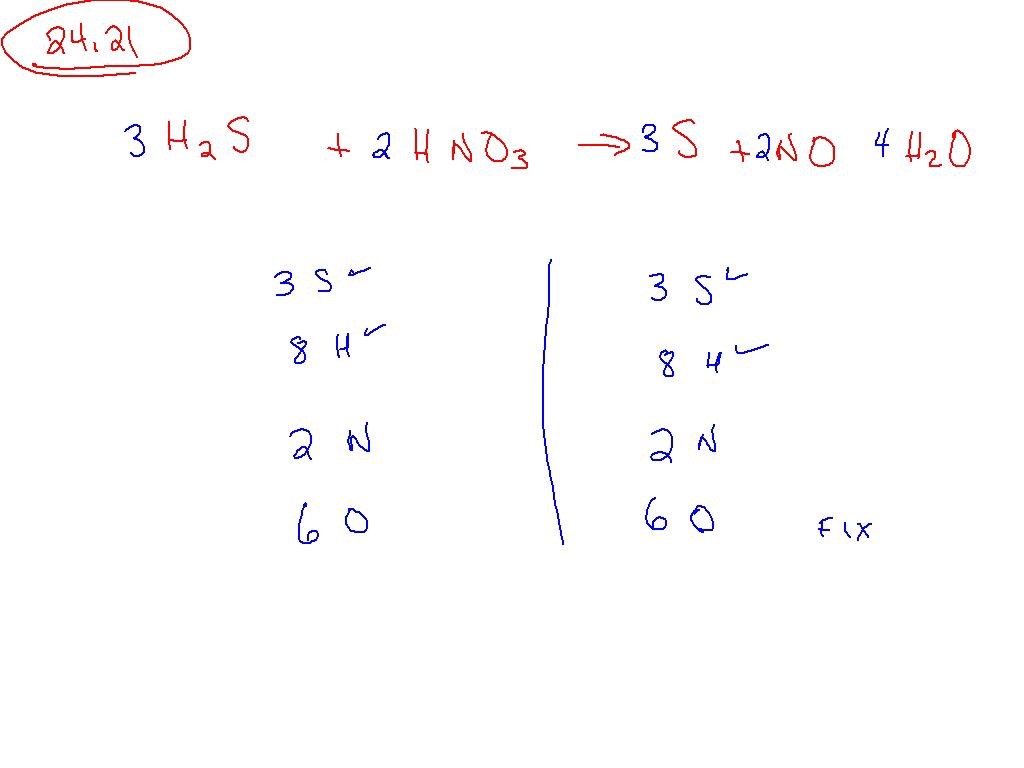 24.21
3 H2S + 2 HNO3 → 3 S + 2NO 4 H2O
3 S ✓ 3 S ✓
8 H ✓ 8 H ✓
2 N 2 N
6 O 6 O FIX